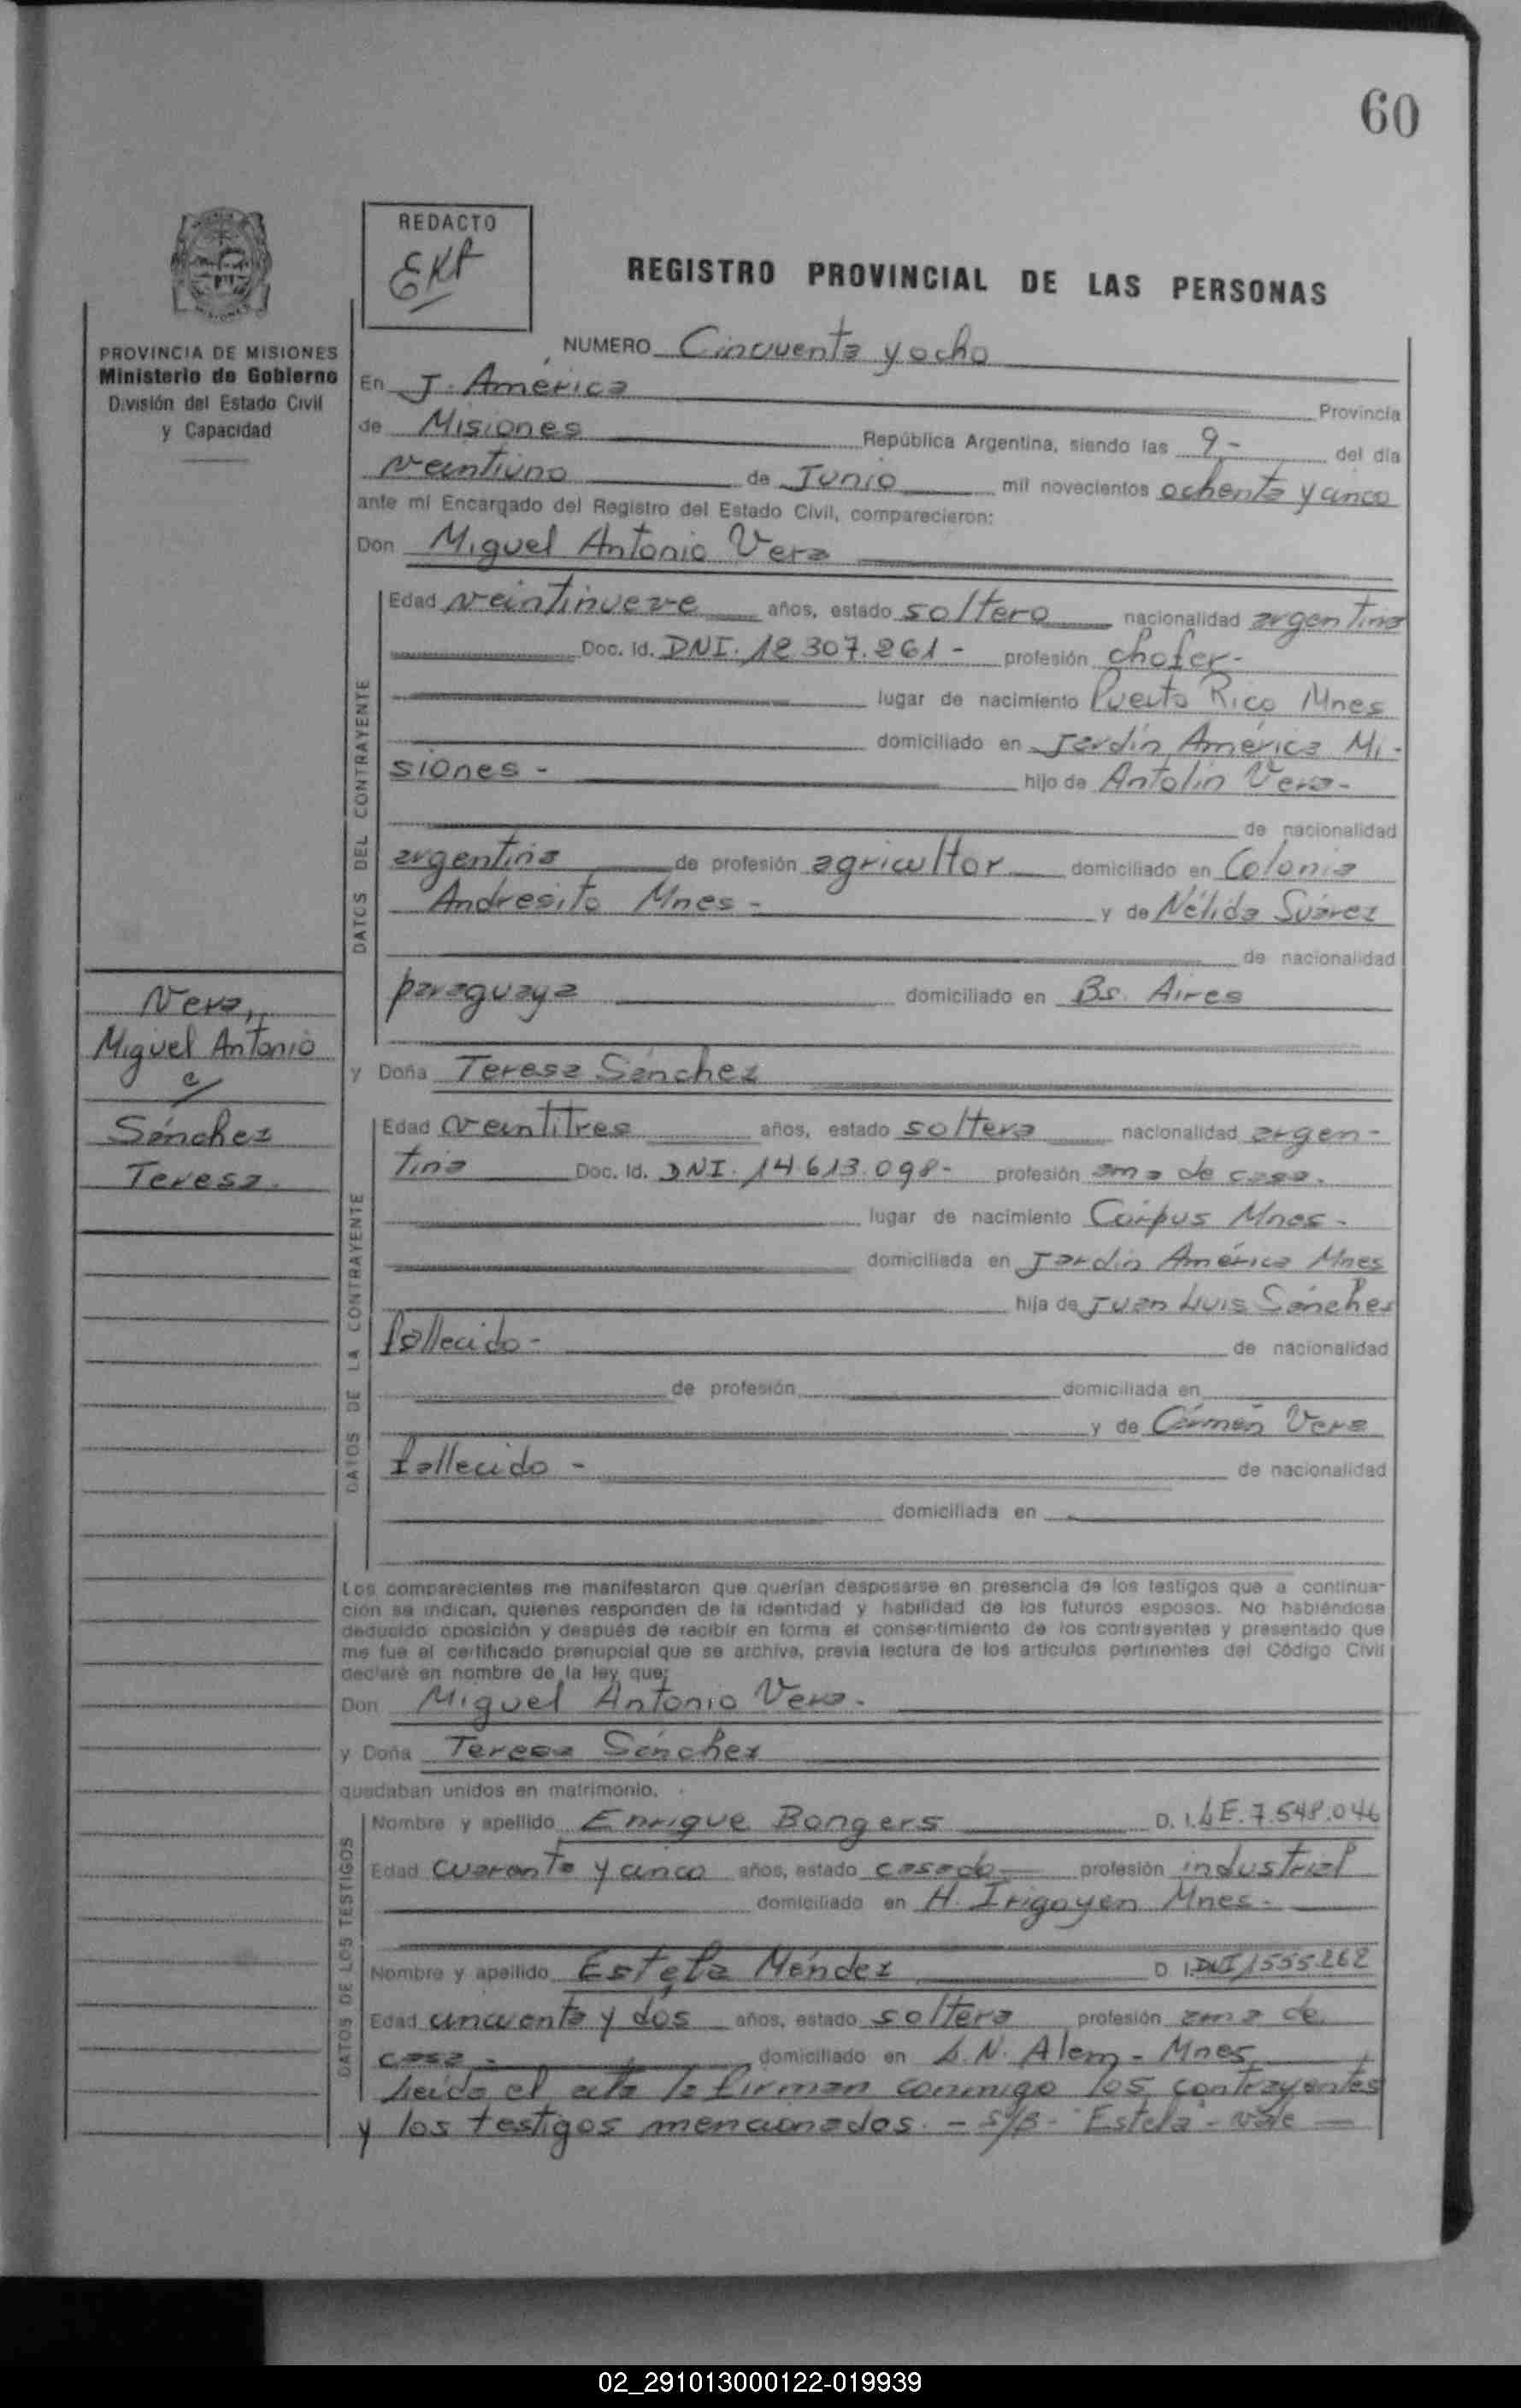 60
REDACTO
EKA
REGISTRO PROVINCIAL DE LAS PERSONAS
PROVINCIA DE MISIONES
Ministerio de Gobierno
División del Estado Civil
y Capacidad
NUMERO Cincuenta y ocho
En J. América Provincia
de Misiones República Argentina, siendo las 9- del día
veintiuno de Junio mil novecientos ochenta y cinco
ante mi Encargado del Registro del Estado Civil, comparecieron:
Don Miguel Antonio Vera
DATOS DEL CONTRAYENTE
Edad veintinueve años, estado soltero nacionalidad argentina
Doc. Id. DNI. 12.307.261- profesión chofer-
lugar de nacimiento Puerto Rico Mnes
domiciliado en Jardín América Mi-
siones - hijo de Antolin Vera-
de nacionalidad
argentina de profesión agricultor domiciliado en Colonia
Andresito Mnes - y de Nélida Súarez
de nacionalidad
paraguaya domiciliado en Bs. Aires
Vera,
Miguel Antonio
c/
Sánchez
Teresa.
y Doña Teresa Sánchez
DATOS DE LA CONTRAYENTE
Edad veintitres años, estado soltera nacionalidad argen-
tina Doc. Id. DNI. 14.613.098- profesión ama de casa.
lugar de nacimiento Corpus Mnes -
domiciliada en Jardín América Mnes
hija de Juan Luis Sánchez
fallecido- de nacionalidad
de profesión domiciliada en
y de Cármen Vera
fallecido - de nacionalidad
domiciliada en
Los comparecientes me manifestaron que querían desposarse en presencia de los testigos que a continua-
ción se indican, quienes responden de la identidad y habilidad de los futuros esposos. No habiéndose
deducido oposición y después de recibir en forma el consentimiento de los contrayentes y presentado que
me fue el certificado prenupcial que se archiva, previa lectura de los artículos pertinentes del Código Civil
declaré en nombre de la ley que:
Don Miguel Antonio Vera.
y Doña Teresa Sánchez
quedaban unidos en matrimonio.
DATOS DE LOS TESTIGOS
Nombre y apellido Enrique Bongers D. I. LE. 7.548.046
Edad cuarenta y cinco años, estado casado profesión industrial
domiciliado en H. Irigoyen Mnes.
Nombre y apellido Estela Méndez D. I. DNI 1555.262
Edad cincuenta y dos años, estado soltera profesión ama de
casa - domiciliado en L.N. Alem - Mnes
Leída el acta la firman conmigo los contrayentes
y los testigos mencionados. - S/B - "Estela" - vale
02_291013000122-019939